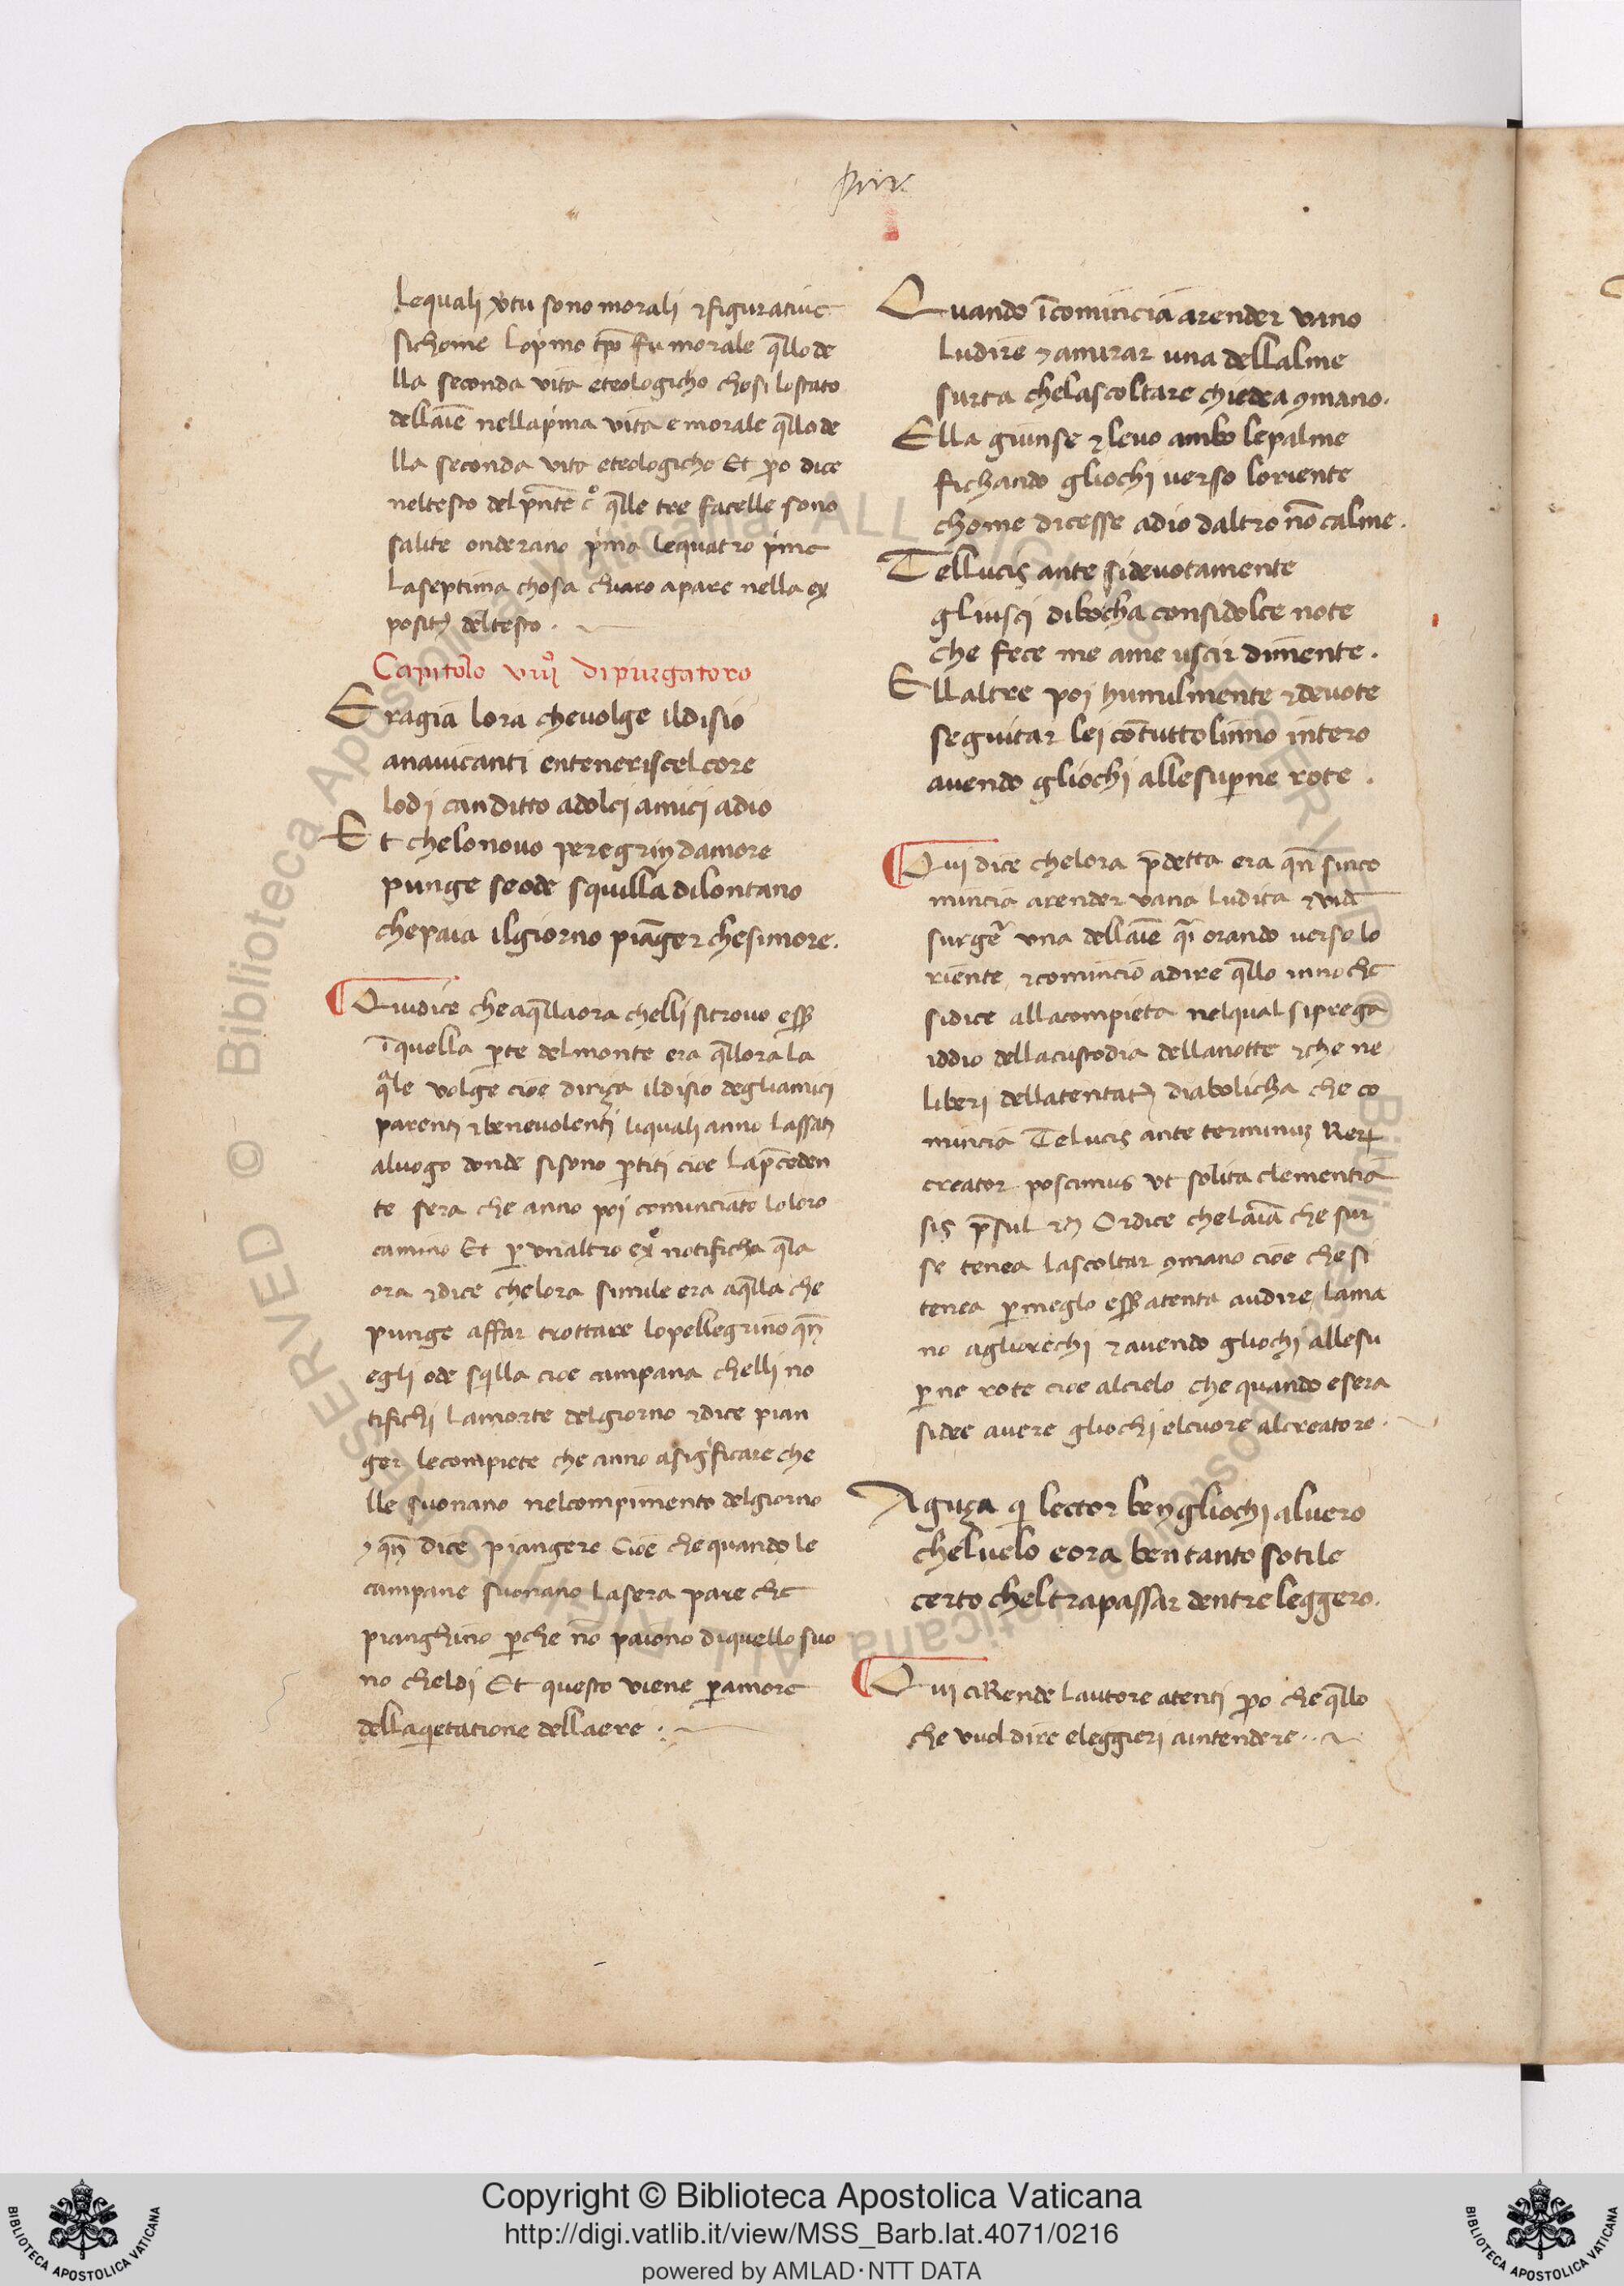 pur
lequalj vtu sono morali ⁊figuratiue
sichome lopimo tpo fu morale qllode
lla seconda vita eteologicho chosi lostato
dellaie nellapima vita e morale qllode
lla seconda vita eteologicho Et po dice
neltesto delpnte cº qlle tre facelle sono
salite onderano pima lequatro pime
laseptima chosa chiaro apare nella ex
positõ deltesto .
Capitolo viijº di purgatoro
Eragia lora chevolge ildisio
anauicanti enteneriscelcore
lodj canditto adolcj amicj adio
Et chelonouo peregrin damore
punge seode squilla dilontano
chepaia ilgiorno piãger chesimore.
Quidice che aqllaora chellj sitrouo ess
ĩquella pte delmonte era qllora la
qle volge cioe diriça ildisio degliamici
parentj ⁊benevolentj liquali anno lassatj
aluogo donde sisono ptiti cioe lapceden
te sera che anno poj cominciato loloro
camino Et p vnaltro exº notificha qla
ora ⁊dice chelora simile era aqlla che
punge affar trottare lopellegrino qñ
eglj ode sqlla cioe campana chelli no
tifichj lamorte delgiorno ⁊dice pian
ger lecompiete che anno asigificare che
lle suonano nelcompimento delgiorno
⁊ qñ dice piangere Cioe che quando le
campane suonano lasera pare che
pianghino pche nõ paiono diquello suo
no cheldj Et questo viene pamore
dellaqetatione dellaere .
Quando ĩcomincia arender vano
ludire ⁊amirar una dellalme
surta chelascoltare chiedea 9mano.
Ella giunse ⁊ leuo ambo lepalme
fichando gliochj verso loriente
chome dicesse adio daltro nõ calme.
Tellucis ante sidevotamente
gliuscj dibocha considolce note
che fece me ame uscir dimente.
Ellaltre poj humilmente ⁊devote
seguitar lej cõtutto linno intero
auendo gliochj allesupne rote .
Qui dice chelora pdetta era qñ sinco
mincia arender vana ludita ⁊ vide
surge vna dellaie q̃i orando verso lo
riente ⁊comincio adire qllo inno che
sidice allacompieta nelqual siprega
iddio dellacustodia dellanotte ⁊che ne
liberj dellatentatõ diabolicha che co
mincia Telucis ante terminuʒ Rerꝝ
creator poscimus vt solita clementia
sis psul ⁊c Ordice chelaia che sur
se tenea lascoltar 9mano cioe che si
tenea pmeglo ess atenta audire lama
no agliorechj ⁊ auendo gliochj allesu
pne rote cioe alcielo che quando esera
sidee auere gliochj elcuore alcreatore.
Aguça qi lector ben gliochj aluero
cheluelo eora ben tanto sotile
certo cheltrapassar dentre leggero.
Qui ciRende lautore atentj po che qllo
che vuol dire eleggierj aintendere .
Copyright © Biblioteca Apostolica Vaticana
http://digi.vatlib.it/view/MSS_Barb.lat.4071/0216
powered by AMLAD·NTT DATA
BIBLIOTECA APOSTOLICA VATICANA
BIBLIOTECA APOSTOLICA VATICANA